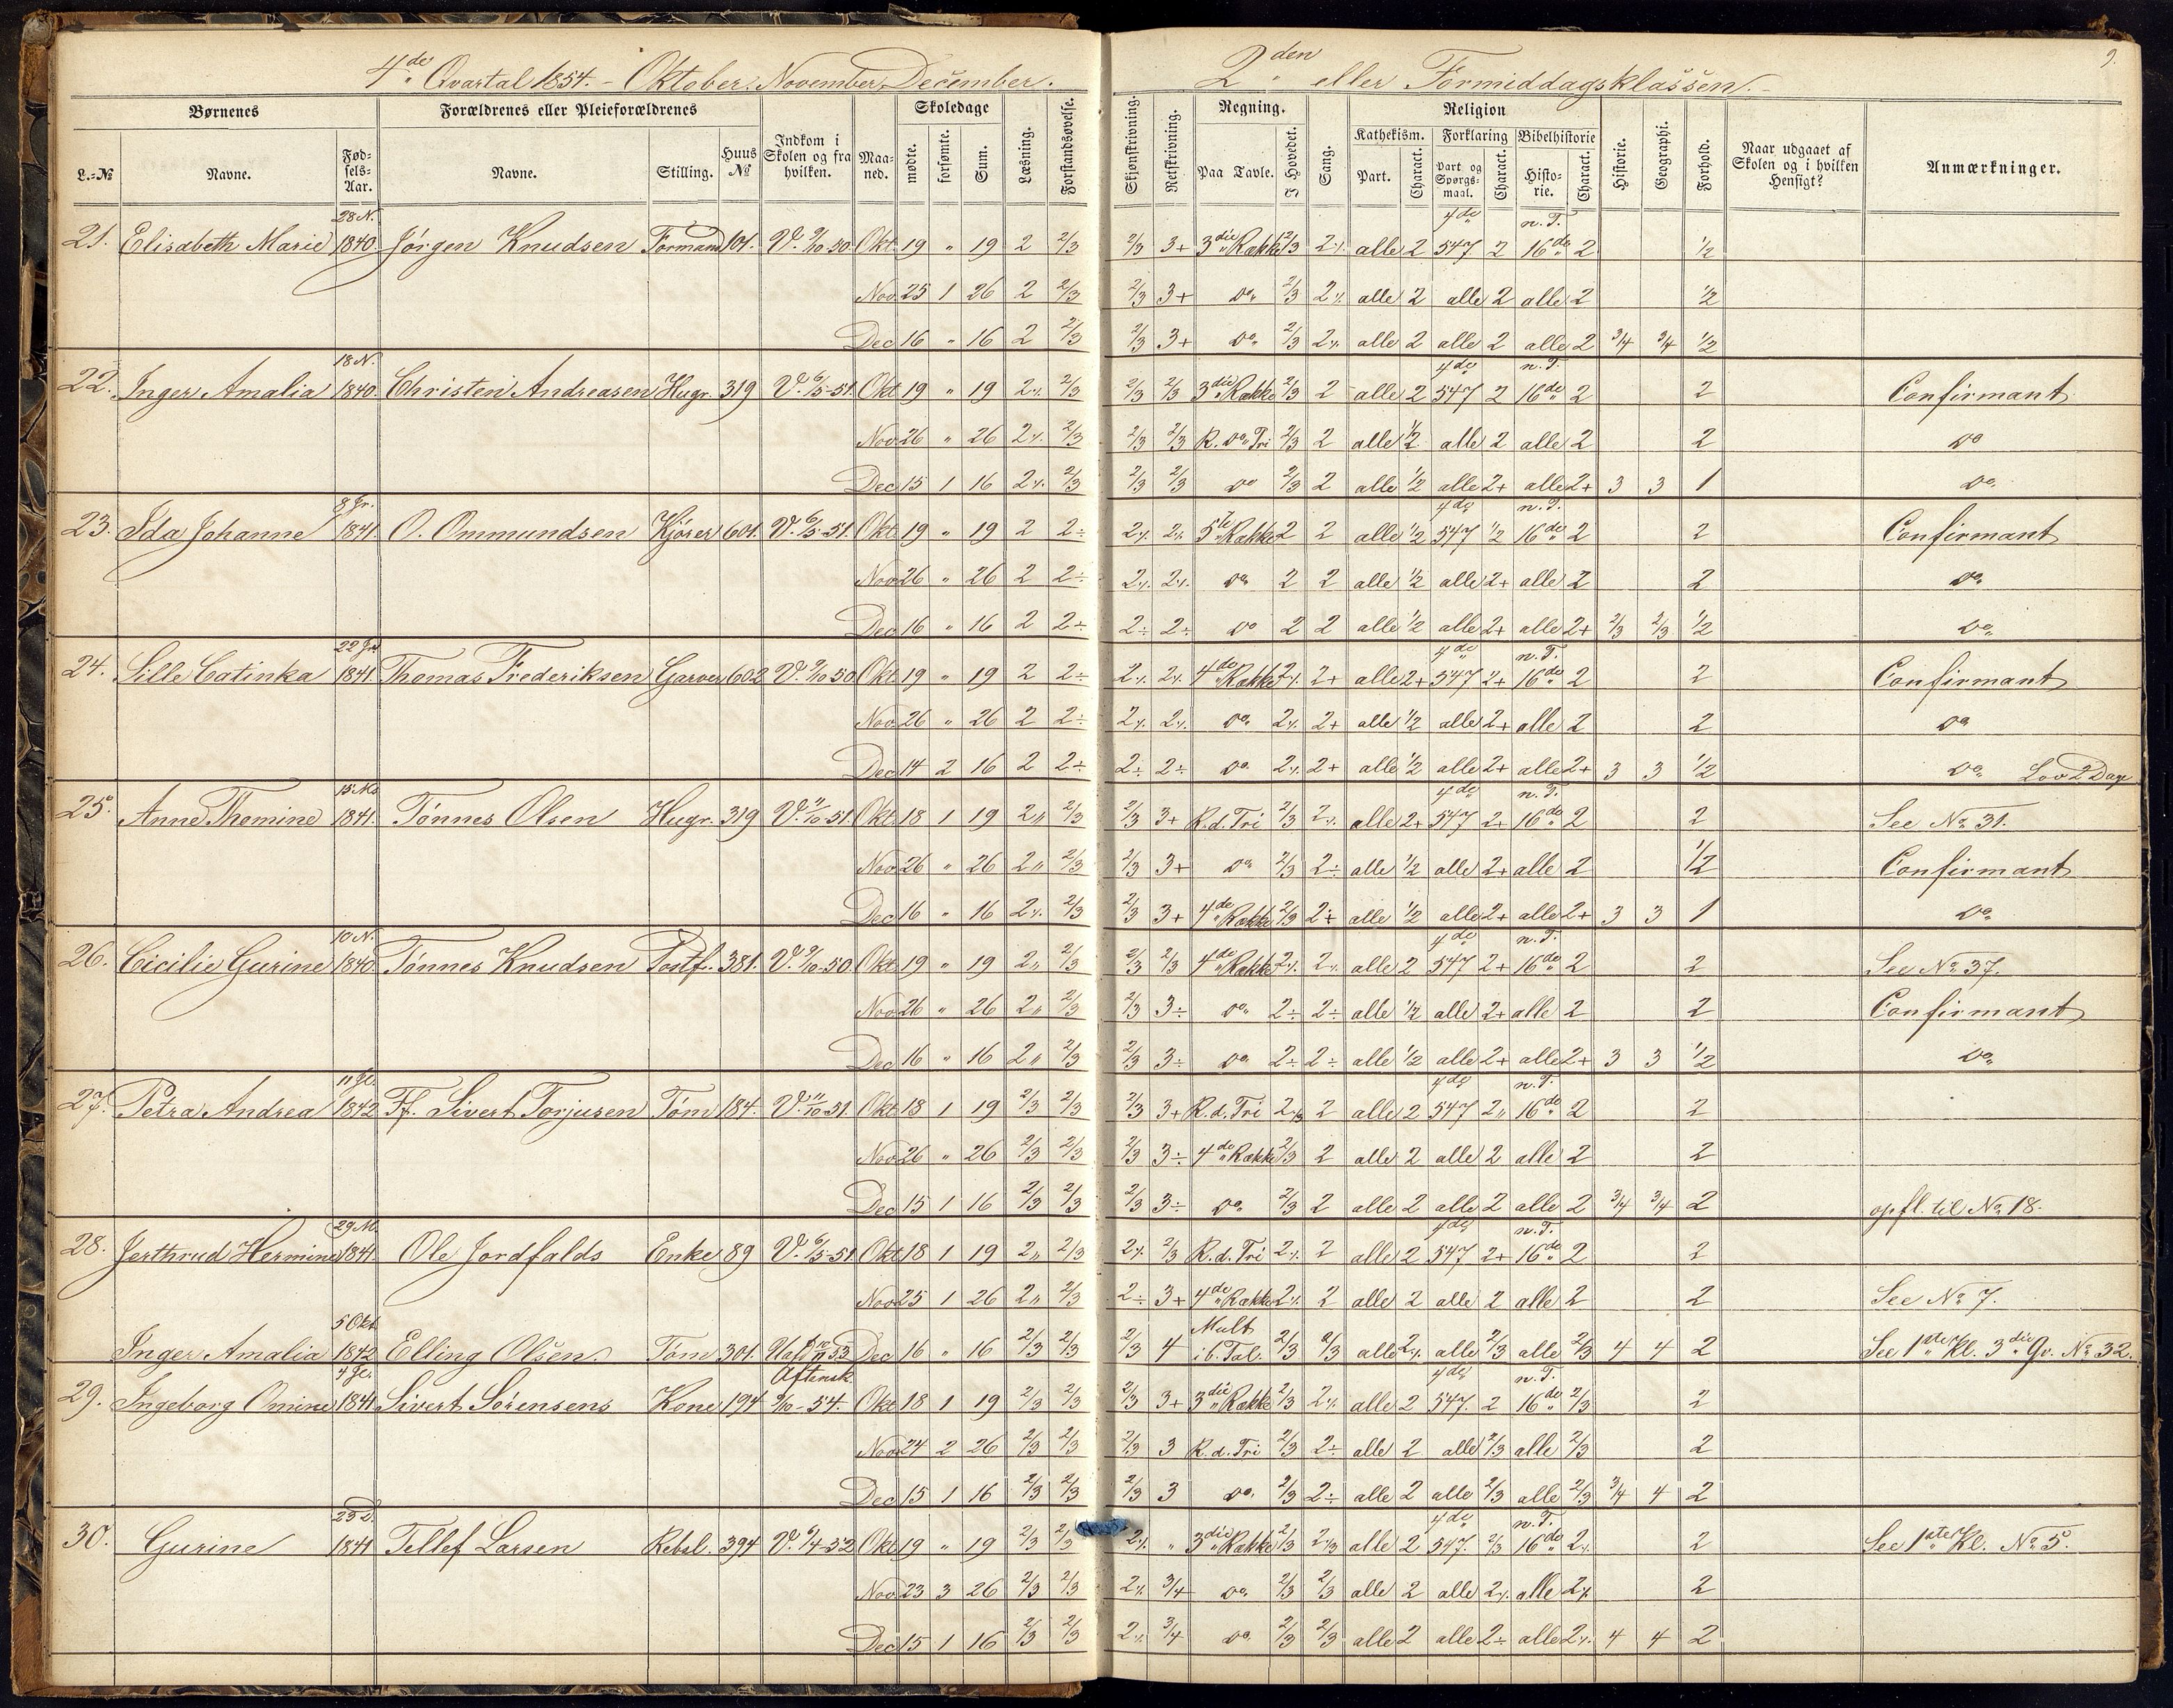 4de Qvartal 1854. - Oktober. November. December.
2den eller Formiddagsklassen.
9.
Børnenes Forældrenes eller Pleieforældrenes Indkom i Skolen og fra hvilken. Maaned. Skoledage Læsning. Forstandsøvelse. Skjønskrivning. Retskrivning. Regning. Sang. Religion Historie. Geographi. Forhold. Naar udgaaet af Skolen og i hvilken Hensigt? Anmærkninger.
L.-No Navne. Fødsels-Aar. Navne. Stilling. Huus No mødte. forsømte. Sum. Paa Tavle. I Hovedet. Kathekism. Forklaring Bibelhistorie
Part. Charact. Part og Spørgsmaal. Charact. Historie. Charact.
28 N. 4de n. T.
21. Elisabeth Marie 1840. Jørgen Knudsen Formand 101. V. 9/10-50. Okt. 19 " 19 2 2/3 2/3 3+ 3die Række 2/3 2% alle 2 547 2 16de 2 1/2
Nov. 25 1 26 2 2/3 2/3 3+ do 2/3 2% alle 2 alle 2 alle 2 1/2
Dec 16 " 16 2 2/3 2/3 3+ do 2/3 2% alle 2 alle 2 alle 2 3/4 3/4 1/2
18 N. 4de n. T.
22. Inger Amalia 1840. Christen Andreasen Hugr. 319 V. 6/5-51. Okt 19 " 19 2% 2/3 2/3 2/3 3die Række 2/3 2 alle 2 547 2 16de 2 2 Confirmant
Nov. 26 " 26 2% 2/3 2/3 2/3 R. do Tri 2/3 2 alle 1/2 alle 2 alle 2 2 do
Dec 15 1 16 2% 2/3 2/3 2/3 do 2/3 2 alle 1/2 alle 2+ alle 2+ 3 3 1 do
8 Jr. 4de n. T.
23. Ida Johanne 1841. O. Ommundsen Kjører 601. V. 6/5-51. Okt. 19 " 19 2 2÷ 2% 2% 5te Række 2 2 alle 1/2 547 1/2 16de 2 2 Confirmant
Nov 26 " 26 2 2÷ 2% 2% do 2 2 alle 1/2 alle 2+ alle 2 2 do
Dec 16 " 16 2 2÷ 2÷ 2÷ do 2 2 alle 1/2 alle 2+ alle 2+ 2/3 2/3 1/2 do
22 Jr. 4de n. T.
24. Sille Catinka 1841 Thomas Frederiksen Garver 602 V. 9/10 50 Okt. 19 " 19 2 2÷ 2% 2% 4de Række 2% 2+ alle 2+ 547 2+ 16de 2 2 Confirmant
Nov. 26 " 26 2 2÷ 2% 2% do 2% 2+ alle 1/2 alle 2+ alle 2 2 do
Dec 14 2 16 2 2÷ 2÷ 2÷ do 2% 2+ alle 1/2 alle 2+ alle 2+ 3 3 1/2 do Lov 2 Dage
15 4de n. T.
25. Anne Thomine 1841. Tønnes Olsen Hugr. 319 V. 11/10-51. Okt. 18 1 19 2" 2/3 2/3 3+ R. d. Tri 2/3 2% alle 2+ 547 2+ 16de 2 2 See No 31.
Nov 26 " 26 2" 2/3 2/3 3+ do 2/3 2÷ alle 1/2 alle 2+ alle 2 1/2 Confirmant
Dec 16 " 16 2% 2/3 2/3 3+ 4de Række 2/3 2÷ alle 1/2 alle 2+ alle 2+ 3 3 1 do
10 N. 4de n. T.
26. Cicilie Gurine 1840 Tønnes Knudsen Postf. 381. V. 9/10-50. Okt. 19 " 19 2" 2/3 2/3 2/3 4de Række 2% 2% alle 2 547 2+ 16de 2 2 See No 37.
Nov 26 " 26 2" 2/3 2/3 3÷ do 2÷ 2÷ alle 1/2 alle 2+ alle 2 2 Confirmant
Dec 16 " 16 2" 2/3 2/3 3÷ do 2÷ 2÷ alle 1/2 alle 2+ alle 2+ 3 3 1/2 do
11 Jl. 4de n. T.
27. Petra Andrea 1842 Ff. Sivert Torjusen Tøm 184. V. 11/10-51. Okt 18 1 19 2/3 2/3 2/3 3+ R. d. Tri 2/3 2 alle 2 547 2" 16de 2 2
Nov 26 " 26 2/3 2/3 2/3 3÷ 4de Række 2/3 2 alle 2 alle 2 alle 2 2
Dec 15 1 16 2/3 2/3 2/3 3÷ do 2/3 2 alle 2 alle 2 alle 2 3/4 3/4 2 opfl. til No 18.
29 M. 4de n. T.
28. Jerthrud Hermine 1841. Ole Jordfalds Enke 89 V. 6/5-51 Okt 18 1 19 2" 2/3 2% 2/3 R. d. Tri 2% 2 alle 2 547 2+ 16de 2 2
Nov 25 1 26 2" 2/3 2÷ 3+ 4de Række 2% 2 alle 2 alle 2 alle 2 2 See No 7.
5 Okt. Mult
Inger Amalia 1842 Elling Olsen Tøm 301. 53 Dec 16 " 16 2/3 2/3 2/3 4 i b. Tal. 2/3 2/3 alle 2% alle 2/3 alle 2/3 4 4 2 See 1ste Kl. 3die Qv. No 32.
4 Jl. Aftensk. 4de n. T.
29. Ingeborg Omine 1841 Sivert Sørensens Kone 194 9/10-54. Okt 18 1 19 2/3 2/3 2/3 3+ 3die Række 2/3 2% alle 2 547 2 16de 2/3 2
Nov 24 2 26 2/3 2/3 2/3 3 R. d. Tri 2/3 2÷ alle 2 alle 2/3 alle 2/3 2
Dec 15 1 16 2/3 2/3 2/3 3 do 2/3 2÷ alle 2 alle 2/3 alle 2/3 3/4 4 2
23 D. 4de n. T.
30. Gurine 1841 Tellef Larsen Rebsl. 394 V. 6/4-52 Okt 19 " 19 2/3 2/3 2% " 3die Række 2/3 2/3 alle 2 547 2/3 16de 2% 2 See 1ste Kl. No 5.
Nov 23 3 26 2/3 2/3 2% 3/4 do 2/3 2/3 alle 2 alle 2% alle 2% 2
Dec 15 1 16 2/3 2/3 2% 3/4 do 2/3 2/3 alle 2 alle 2÷ alle 2% 4 4 2